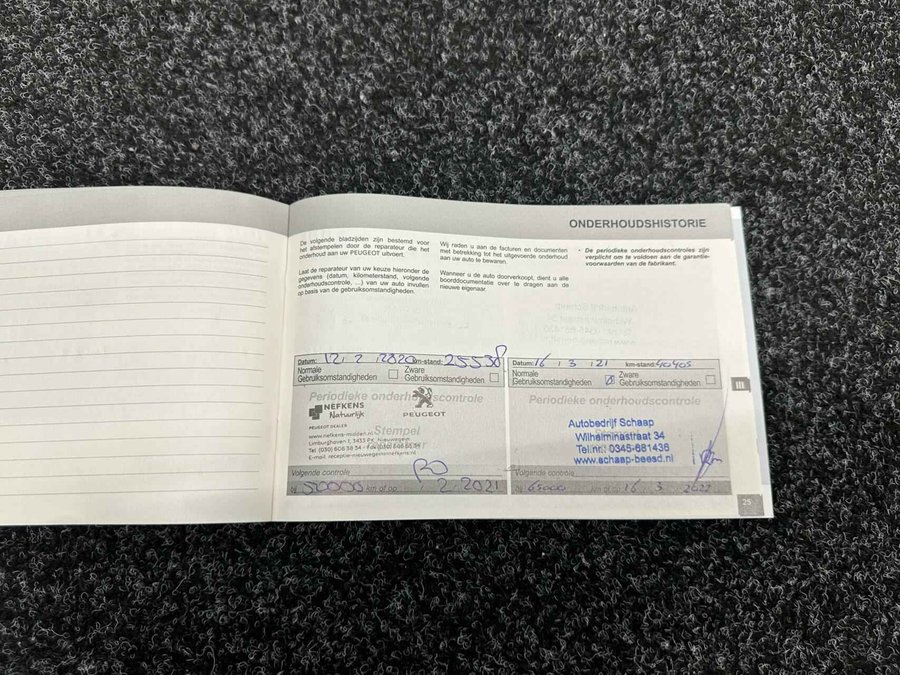 ONDERHOUDSHISTORIE
De volgende bladzijden zijn bestemd voor
het afstempelen door de reparateur die het
onderhoud aan uw PEUGEOT uitvoert.
Laat de reparateur van uw keuze hieronder de
gegevens (datum, kilometerstand, volgende
onderhoudscontrole, ...) van uw auto invullen
op basis van de gebruiksomstandigheden.
Wij raden u aan de facturen en documenten
met betrekking tot het uitgevoerde onderhoud
aan uw auto te bewaren.
Wanneer u de auto doorverkoopt, dient u alle
boorddocumentatie over te dragen aan de
nieuwe eigenaar.
• De periodieke onderhoudscontroles zijn
verplicht om te voldoen aan de garantie-
voorwaarden van de fabrikant.
Datum: 12 / 2 / 2020 km-stand: 25538
Normale
Gebruiksomstandigheden
Zware
Gebruiksomstandigheden
Periodieke onderhoudscontrole
NEFKENS
Natuurlijk
PEUGEOT
PEUGEOT DEALER
Stempel
Volgende controle
bij 50000 km of op 2 / 2021
Datum: 16 / 3 / 21 km-stand: 40405
Normale
Gebruiksomstandigheden
Zware
Gebruiksomstandigheden
Periodieke onderhoudscontrole
Autobedrijf Schaap
Wilhelminastraat 34
Tel.nr.: 0345-681436
www.schaap-beesd.nl
Volgende controle
bij 65000 km of op 16 / 3 / 2022
III
25